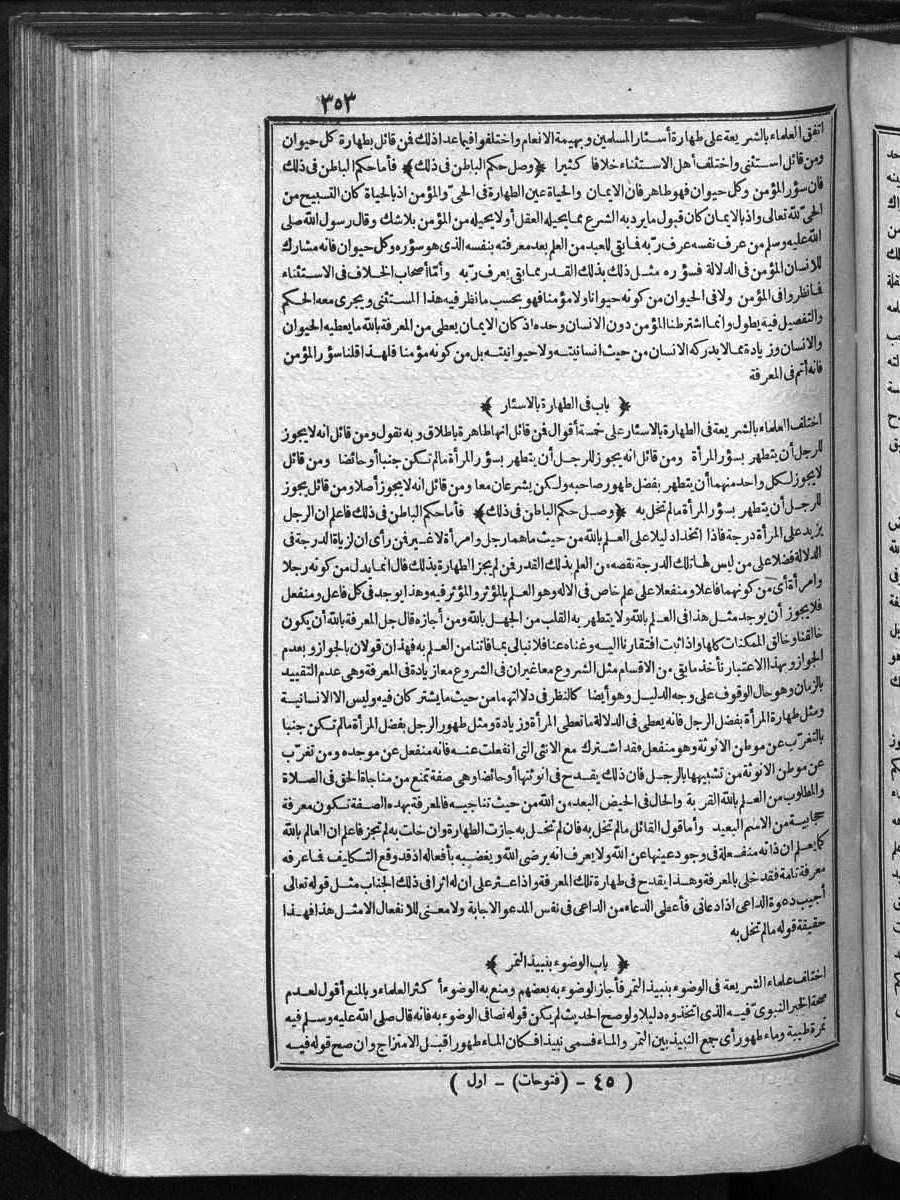 ٣٥٣
اتفق العلماء بالشريعة على طهارة أسئار المسلمين وبهيمة الانعام واختلفوا فيما عدا ذلك فمن قائل بطهارة كل حيوان
ومن قائل استثنى واختلف أهل الاستثناء خلافا كثيرا ﴿وصل حكم الباطن فى ذلك﴾ فأما حكم الباطن فى ذلك
فان سؤر المؤمن وكل حيوان فهو طاهر فان الايمان والحياة عين الطهارة فى الحىّ والمؤمن اذ بالحياة كان التسبيح من
الحىّ لله تعالى واذ بالايمان كان قبول ما يرد به الشرع مما يحيله العقل أو لا يحيله من المؤمن بلا شك وقال رسول الله صلى
الله عليه وسلم من عرف نفسه عرف ربه فما بقى للعبد من العلم بعد معرفته بنفسه الذى هو سؤره وكل حيوان فانه مشارك
للانسان المؤمن فى الدلالة فسؤره مثل ذلك بذلك القدر مما بقى يعرف ربه وأمّا أصحاب الخلاف فى الاستثناء
فما نظروا فى المؤمن ولا فى الحيوان من كونه حيوانا ولا مؤمنا فهو بحسب ما نظر فيه هذا المستثنى ويجرى معه الحكم
والتفصيل فيه يطول وانما اشترطنا المؤمن دون الانسان وحده اذ كان الايمان يعطى من المعرفة بالله ما يعطيه الحيوان
والانسان وزيادة مما لا يدركه الانسان من حيث انسانيته ولا حيوانيته بل من كونه مؤمنا فلهذا قلنا سؤر المؤمن
فانه أتم فى المعرفة
﴿ باب فى الطهارة بالاسئار ﴾
اختلف العلماء بالشريعة فى الطهارة بالاسئار على خمسة أقوال فمن قائل انها طاهرة باطلاق وبه نقول ومن قائل انه لا يجوز
للرجل أن يتطهر بسؤر المرأة ومن قائل انه يجوز للرجل أن يتطهر بسؤر المرأة ما لم تكن جنبا أو حائضا ومن قائل
لا يجوز لكل واحد منهما أن يتطهر بفضل طهور صاحبه ولكن يشرعان معا ومن قائل انه لا يجوز أصلا ومن قائل يجوز
للرجل أن يتطهر بسؤر المرأة ما لم تخل به ﴿وصل حكم الباطن فى ذلك﴾ فأما حكم الباطن فى ذلك فاعلم ان الرجل
يزيد على المرأة درجة فاذا اتخذ دليلا على العلم بالله من حيث ما هما رجل وامرأة لا غير فمن رأى ان لزيادة الدرجة فى
الدلالة فضلا على من ليس لها تلك الدرجة نقصه من العلم بذلك القدر فمن لم يجز الطهارة بذلك قال انما يدل من كونه رجلا
وامرأة أى من كونهما فاعلا ومنفعلا على علم خاص فى الاله وهو العلم بالمؤثر والمؤثر فيه وهذا يوجد فى كل فاعل ومنفعل
فلا يجوز أن يوجد مثل هذا فى العلم بالله ولا يتطهر به القلب من الجهل بالله ومن أجازه قال جل المعرفة بالله أن يكون
خالقنا وخالق الممكنات كلها واذا ثبت افتقارنا اليه وغناه عنا فلا نبالى بما فاتنا من العلم به فهذان قولان بالجواز وبعدم
الجواز وبهذا الاعتبار نأخذ ما بقى من الاقسام مثل الشروع معا غير ان فى الشروع معا زيادة فى المعرفة وهى عدم التقييد
بالزمان وهو حال الوقوف على وجه الدليل وهو أيضا كالنظر فى دلالتهما من حيث ما يشتركان فيه وليس الا الانسانية
ومثل طهارة المرأة بفضل الرجل فانه يعطى فى الدلالة ما تعطى المرأة وزيادة ومثل طهور الرجل بفضل المرأة ما لم تكن جنبا
بالتغرّب عن موطن الانوثة وهو منفعل فقد اشترك مع الانثى التى انفعلت عنه فانه منفعل عن موجده ومن تغرّب
عن موطن الانوثة من تشبيهها بالرجل فان ذلك يقدح فى انوثتها أو حائضا وهى صفة تمنع من مناجاة الحق فى الصلاة
والمطلوب من العلم بالله القربة والحال فى الحيض البعد من الله من حيث تناجيه فالمعرفة بهذه الصفة تكون معرفة
حجابية من الاسم البعيد وأما قول القائل ما لم تخل به فان لم تخل به جازت الطهارة وان خلت به لم تجز فاعلم ان العالم بالله
كما يعلم ان ذاته منفعلة فى وجود عينها عن الله ولا يعرف انه يرضى الله ويغضبه بأفعاله اذ قد وقع التكليف فما عرفه
معرفة تامة فقد خلى بالمعرفة وهذا يقدح فى طهارة تلك المعرفة واذا عثر على ان له اثرا فى ذلك الجناب مثل قوله تعالى
أجيب دعوة الداعى اذا دعانى فأعطى الدعاء من الداعى فى نفس المدعو الاجابة ولا معنى للانفعال الا مثل هذا فهذا
حقيقة قوله ما لم تخل به
﴿ باب الوضوء بنبيذ التمر ﴾
اختلف علماء الشريعة فى الوضوء بنبيذ التمر فأجاز الوضوء به بعضهم ومنع به الوضوء أكثر العلماء وبالمنع أقول لعدم
صحة الخبر النبوىّ فيه الذى اتخذوه دليلا ولو صح الحديث لم يكن قوله نصا فى الوضوء به فانه قال صلى الله عليه وسلم فيه
تمرة طيبة وماء طهور أى جمع النبيذ بين التمر والماء فسمى نبيذا فكان الماء طهورا قبل الامتزاج وان صح قوله فيه
( ٤٥ - (فتوحات) - اول )